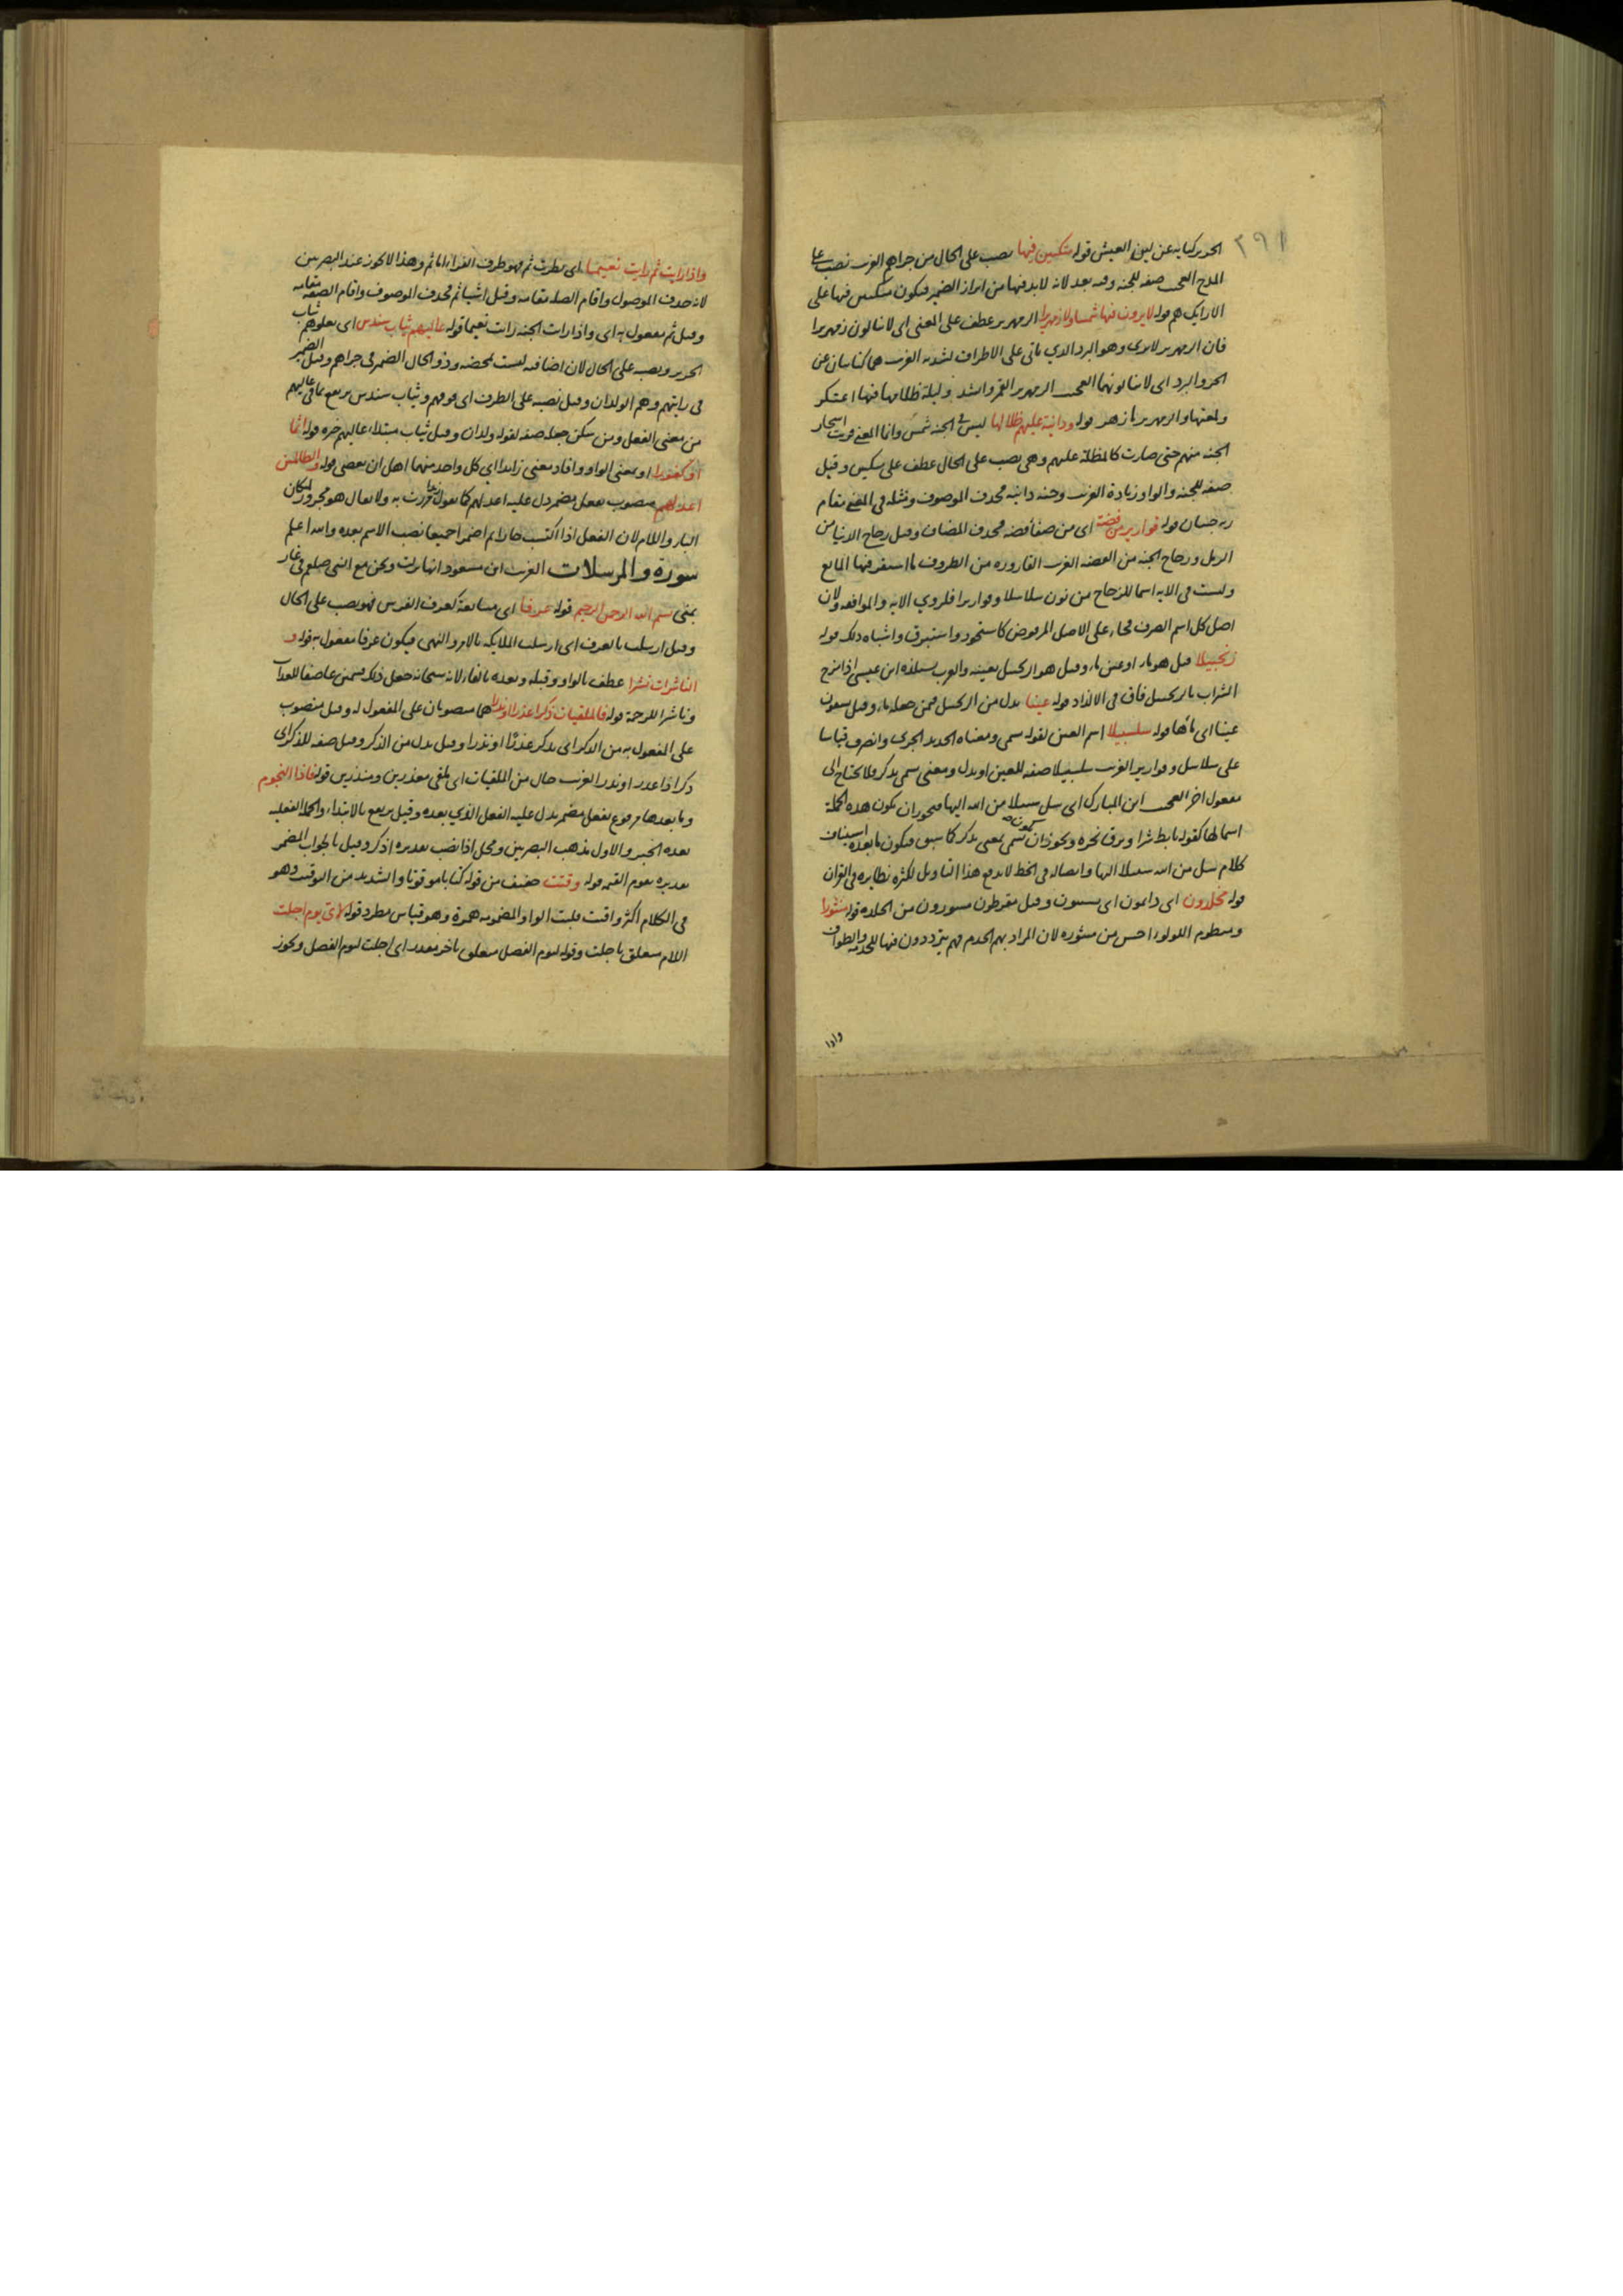 ٢٩١
الحرير كناية عن لين العيش قوله متكئين فيها نصب على الحال من جزاهم الغريب نصب على
المدح العجيب صفة للجنة وفيه بعد لانه لا بد فيها من ابراز الضمير فيكون متكئين فيها على
الارايك هم قوله لا يرون فيها شمسا ولا زمهريرا الزمهرير عطف على المعنى اى لا ينالون زمهريرا
فان الزمهرير لا يرى وهو البرد الذي ياتى على الاطراف لشدته الغريب هما كنايتان عن
الحر والبرد اى لا ينالونهما العجيب الزمهرير القمر وانشد وليلة ظلامها فيها اعتكر
وقطعتها والزمهرير ما زهر قوله ودانية عليهم ظلالها ليس فى الجنة شمس وانما المعنى قربت اشجار
الجنة منهم حتى صارت كالمظلة عليهم وهى نصب على الحال عطف على متكئين وقيل
صفة للجنة والواو زيادة الغريب وجنة دانية فحذف الموصوف ومثله فى المعنى مقام
ربه جنتان قوله قوارير من فضة اى من صفا فضة فحذف المضاف وقيل زجاج الدنيا من
الرمل وزجاج الجنة من الفضة الغريب القارورة من الظروف ما استقر فيها المايع
وليست فى الاية اسما للزجاج من نون سلاسلا وقواريرا فلروى الاية والموافقة ولان
اصل كل اسم الصرف فجاء على الاصل المرفوض كاستحوذ واستبرق واشباه ذلك قوله
زنجبيلا قيل هو ماء او عين ماء وقيل هو الزنجبيل بعينه والعرب تستلذه ابن عيسى اذا مزج
الشراب بالزنجبيل فاق فى الالذاذ قوله عينا بدل من الزنجبيل فيمن جعله ماء وقيل يسقون
عينا اى ماءها قوله سلسبيلا اسم العين لقوله تسمى ومعناه الحديد الجرى وانصرف قياسا
على سلاسل وقوارير الغريب سلسبيلا صفة للعين او بدل ومعنى تسمى تذكر فلا تحتاج الى
مفعول اخر العجيب ابن المبارك اى سل سبيلا من الله اليها فيجوز ان تكون هذه الجملة
اسما لها كقوله تابط شرا وبرق نحره ويجوز ان يكون تسمى بمعنى تذكر كما سبق فيكون ما بعده استيناف
كلام سل من الله سبيلا اليها واتصاله فى الخط لا يدفع هذا التاويل لكثرة نظايره فى القران
قوله مخلدون اى دايمون اى يسنون وقيل مقرطون مسورون من الخلدة قوله منثورا
ومنظوم اللؤلؤ احسن من منثوره لان المراد بهم الخدم فهم يترددون فيها للخدمة والطواف
واذا
واذا رايت ثم رايت نعيما اى نظرت ثم فهو ظرف الفراء ما ثم وهذا لا يجوز عند البصريين
لانه حذف الموصول واقام الصلة مقامه وقيل اشيا ثم فحذف الموصوف واقام الصفة مقامه
وقيل ثم مفعول به اى واذا رايت الجنة رايت نعيما قوله عاليهم ثياب سندس اى يعلوهم ثياب
الحرير ونصبه على الحال لان اضافته ليست لمحضة وذو الحال الضمير فى جزاهم وقيل الضمير
فى رايتهم وهم الولدان وقيل نصبه على الظرف اى فوقهم وثياب سندس يرتفع بما فى عاليهم
من معنى الفعل ومن سكن جعله صفة لقوله ولدان وقيل ثياب مبتداء عاليهم خبره قوله اثما
او كفورا او بمعنى الواو وافاد معنى زايدا اى كل واحد منهما اهل ان يعصى قوله والظالمين
اعد لهم منصوب بفعل مضمر دل عليه اعد لهم كما تقول زيدا مررت به ولا يقال هو مجرور لمكان
الباء واللام لان الفعل اذا اكتسب جارا ثم اضمرا جميعا نصب الاسم بعده والله اعلم
سورة والمرسلات الغريب ابن مسعود انها نزلت ونحن مع النبى صلعم فى غار
بمنى بسم الله الرحمن الرحيم قوله عرفا اى متتابعة كعرف الفرس فهو نصب على الحال
وقيل ارسلت بالعرف اى ارسلت الملايكة بالامر والنهى فيكون عرفا مفعول به قوله و
الناشرات نشرا عطف بالواو وقبله وبعده بالفاء لانه سبحانه جعل ذلك قسمين عاصفا للعذاب
وناشرا للرحمة قوله فالملقيات ذكرا عذرا او نذرا هما منصوبان على المفعول له وقيل منصوب
على المفعول به من الذكر اى يذكر عذرًا او نذرا وقيل بدل من الذكر وقيل صفة للذكر اى
ذكرا ذا عذر او نذر الغريب حال من الملقيات اى تلقى معذرين ومنذرين قوله فاذا النجوم
وما بعدها مرفوع بفعل مضمر يدل عليه الفعل الذي بعده وقيل يرتفع بالابتداء والجملة الفعلية
بعده الخبر والاول مذهب البصريين ومحل اذا نصب تقديره اذكر وقيل بالجواب المضمر
تقديره تقوم القيمة قوله وقتت خفيف من قوله كتابا موقوتا والتشديد من التوقيت وهو
فى الكلام اكثر واقتت قلبت الواو المضمومة همزة وهو قياس مطرد قوله لاى يوم اجلت
اللام متعلق باجلت وقوله ليوم الفصل متعلق باخر مقدر اى اجلت ليوم الفصل ويجوز